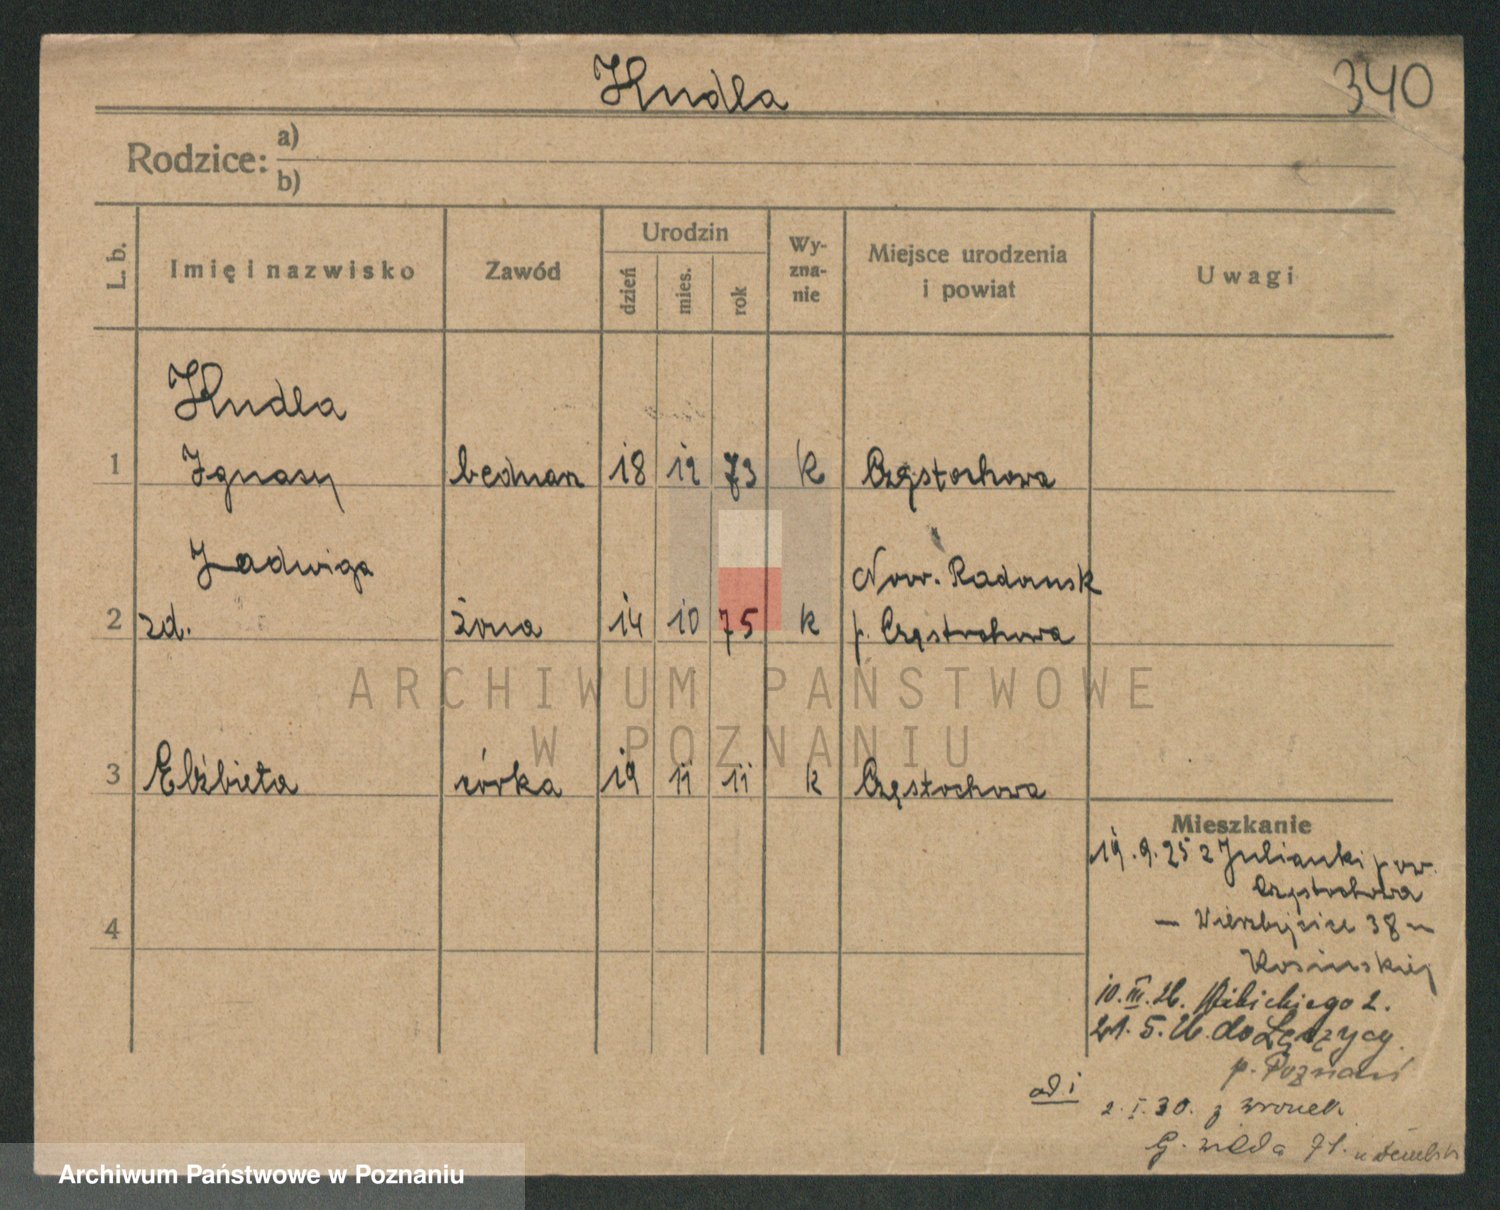 Kudła
340
Rodzice: a)
b)
L. b.
Imię i nazwisko
Zawód
Urodzin
dzień
mies.
rok
Wy-
zna-
nie
Miejsce urodzenia
i powiat
Uwagi
Kudła
1 Ignacy bednarz 18 12 73 k Częstochowa
Jadwiga Now. Radomsk
2 zd. żona 14 10 75 k p. Częstochowa
3 Elżbieta córka 19 11 11 k Częstochowa
4
Mieszkanie
19.9.25 z Julianki pow.
Częstochowa
— Wierzbięcice 38 u
Kosińskiej
10.III.26. Rybickiego 2.
21.5.26. do Łęczycy
p. Poznań
ad. 1
2.I.30. z Wronek
G. Wilda 71. u
ARCHIWUM PAŃSTWOWE
W POZNANIU
Archiwum Państwowe w Poznaniu